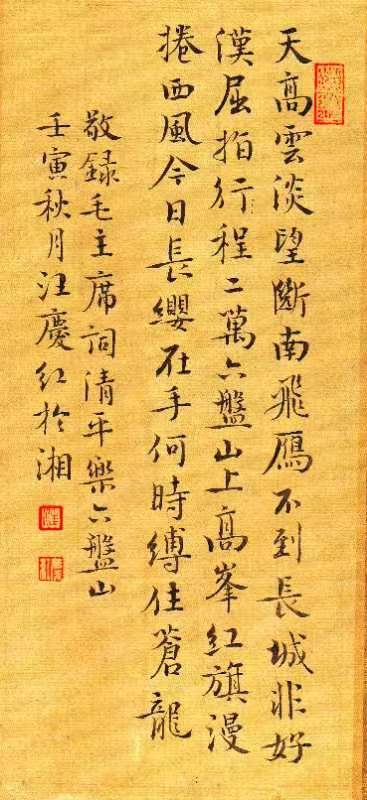 天高雲淡望斷南飛鴈不到長城非好
漢屈指行程二萬六盤山上高峯紅旗漫
捲西風今日長纓在手何時縛住蒼龍
敬録毛主席詞清平樂六盤山
壬寅秋月汪慶紅於湘